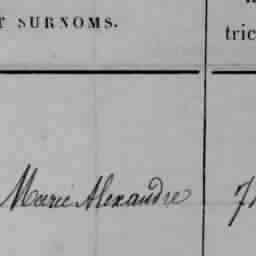 T SURNOMS.
tric
Marie Alexandre